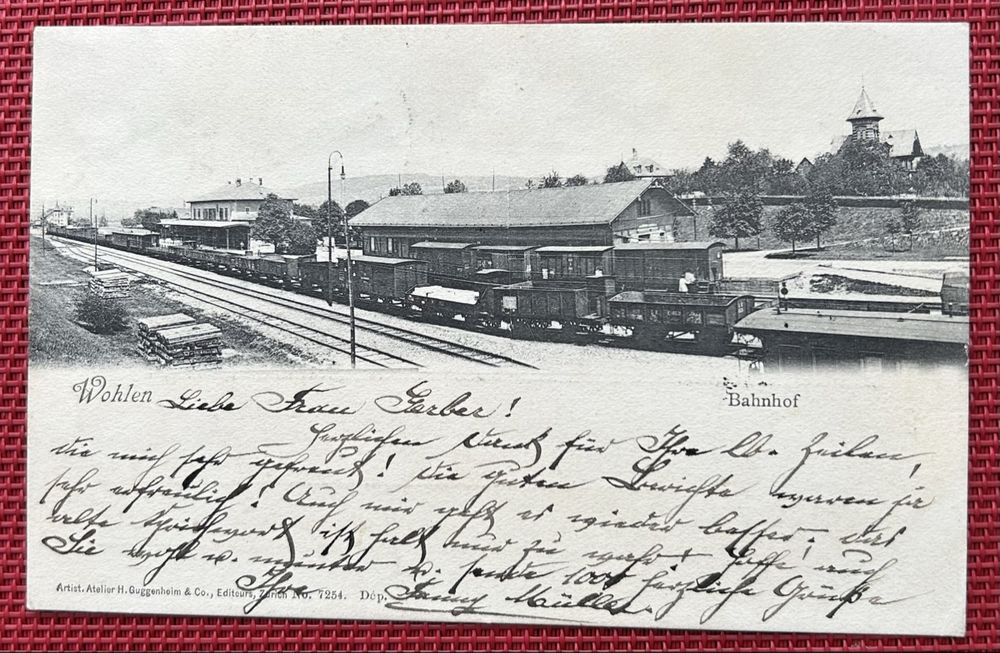 Wohlen
Bahnhof
Liebe Frau Gerber!
Herzlichen Dank für Ihre lb. Zeilen,
die mich sehr gefreut! Die guten Berichte waren ja
sehr erfreulich! Auch mir geht es wieder besser. Das
alte Sprichwort ist halt nur zu wahr! Hoffe auch
Sie wohl u. munter u. sende 100 herzliche Grüße
Ihre
Fanny Müller.
Artist. Atelier H. Guggenheim & Co., Editeurs, Zürich No. 7254. Dép.